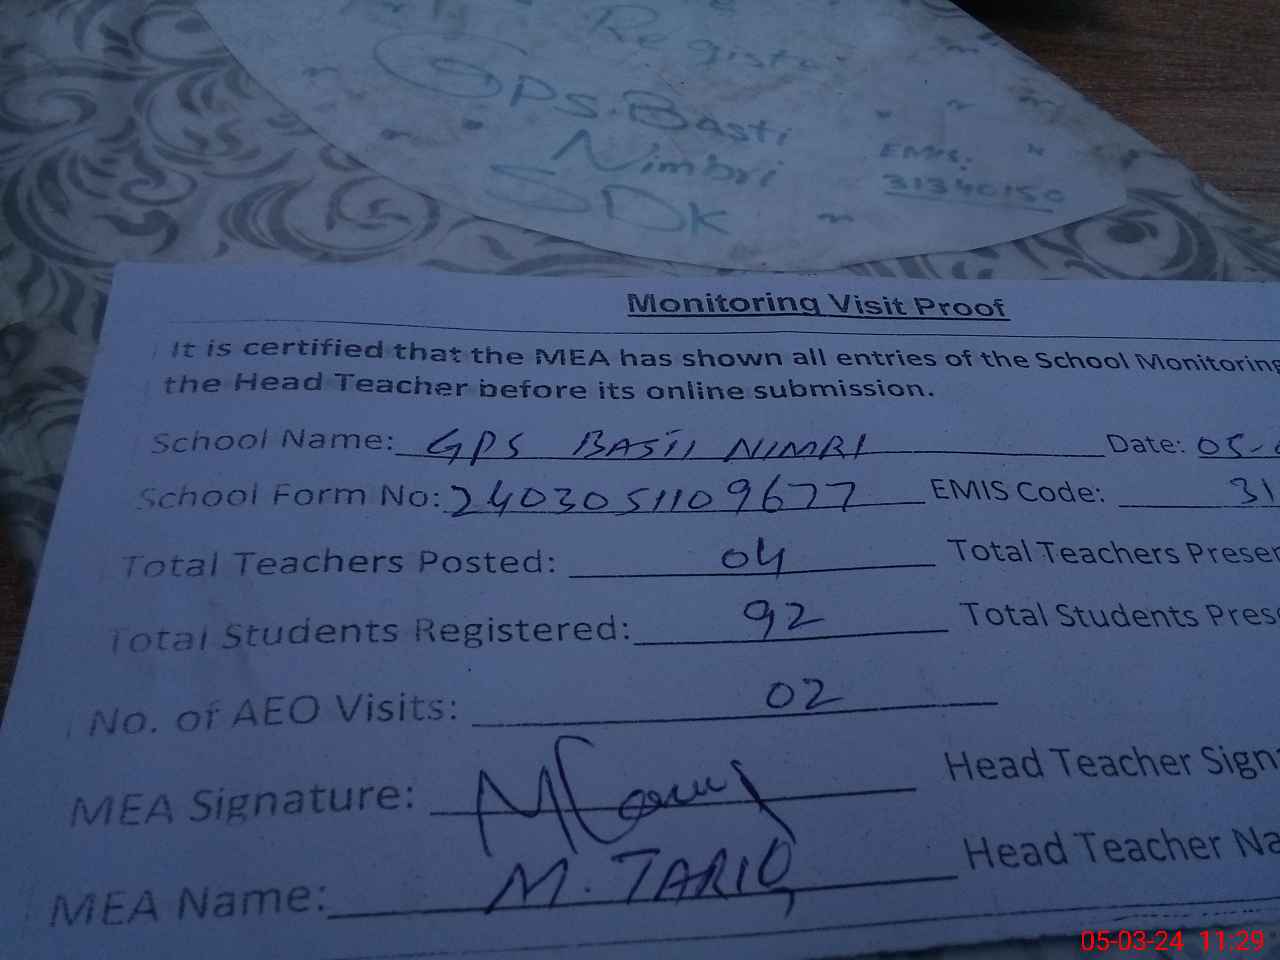 Registe
GPS. Basti
Nimbri
SDK
EMIS.
31340150
Monitoring Visit Proof
It is certified that the MEA has shown all entries of the School Monitoring
the Head Teacher before its online submission.
School Name: GPS BASTI NIMRI Date: 05-
School Form No: 2403051109677 EMIS Code: 31
Total Teachers Posted: 04 Total Teachers Presen
Total Students Registered: 92 Total Students Pres
No. of AEO Visits: 02
MEA Signature: Head Teacher Sign
MEA Name: M. TARIQ Head Teacher Na
05-03-24 11:29